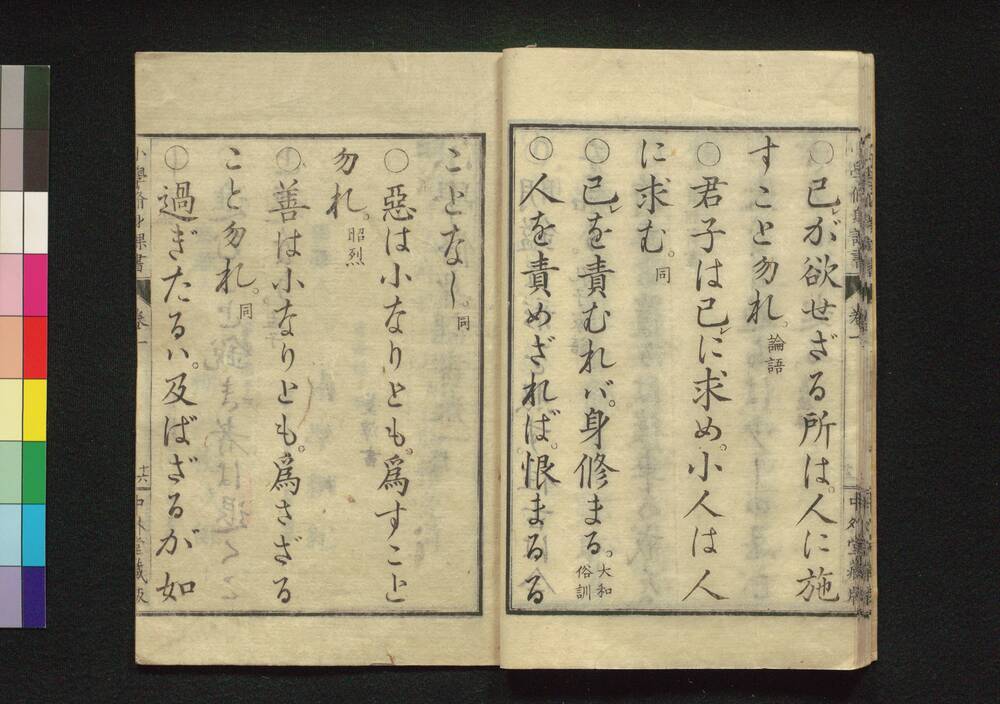 ○己レが欲せざる所は。人に施
すこと勿れ。論語
○君子は己レに求め。小人は人
に求む。同
○己レを責むれバ。身修まる。大和俗訓
○人を責めざれば。恨まるる
ことなし。同
○惡は小なりとも。爲すこと
勿れ。昭烈
○善は小なりとも。爲さざる
こと勿れ。同
○過ぎたるハ。及ばざるが如
小學脩身課書 卷一 十六 中外堂藏版